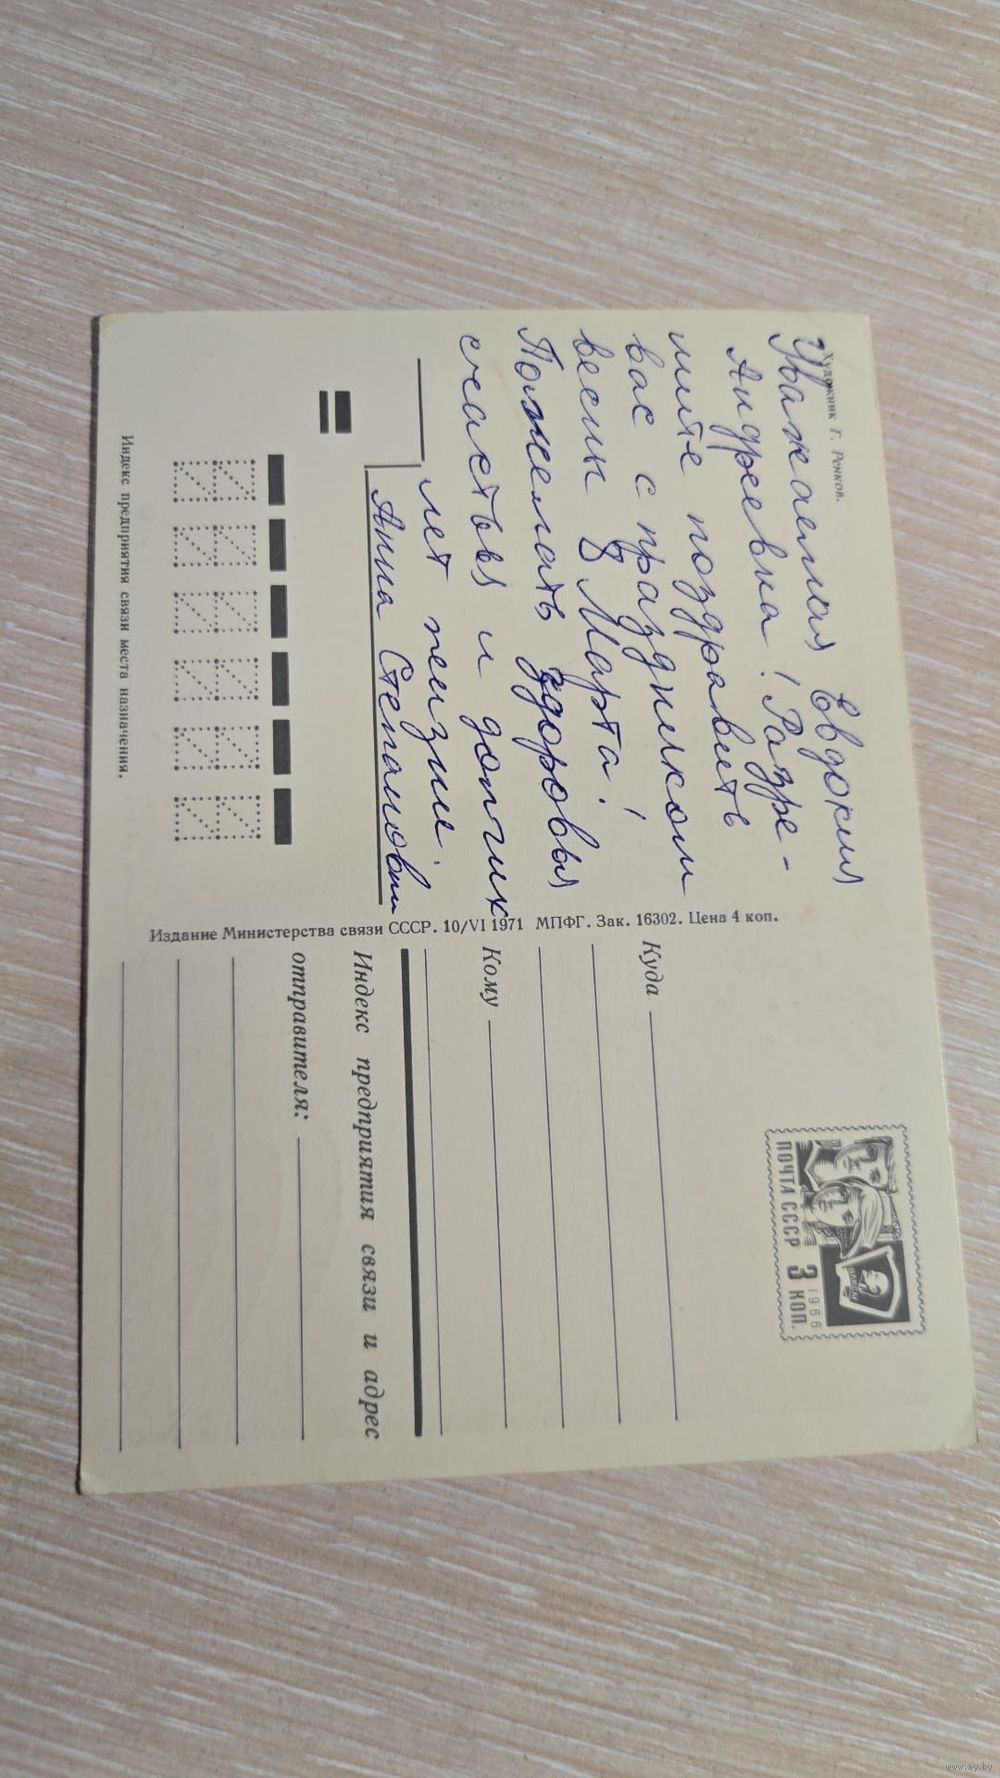 Художник Г. Ренков.
Уважаемая Евдокия
Андревна! Разре-
шите поздравить
вас с праздником
весны 8 Марта!
Пожелать здоровья
счастья и долгих
лет жизни.
Анна Степановн
Индекс предприятия связи места назначения.
Издание Министерства связи СССР. 10/VI 1971 МПФГ. Зак. 16302. Цена 4 коп.
ПОЧТА СССР 3 КОП.
1966
Куда
Кому
Индекс предприятия связи и адрес
отправителя:
www.ay.by